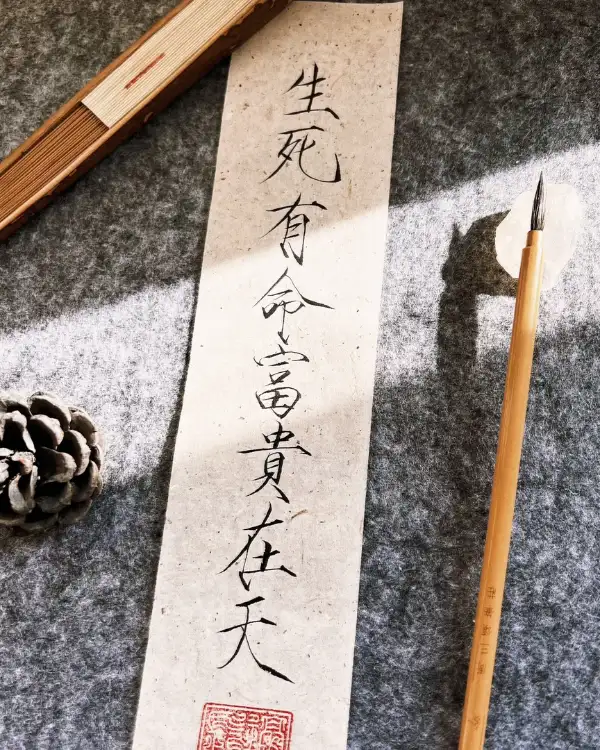 生死有命富貴在天